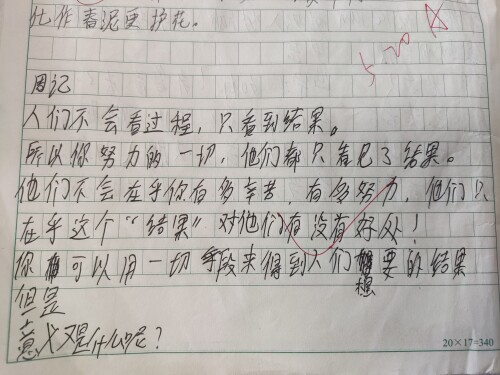 化作春泥更护花。
5.20 A
周记
人们不会看过程，只看到结果。
所以你努力的一切，他们都只看见了结果。
他们不会在乎你有多辛苦，有多努力，他们只
在乎这个“结果”对他们有没有好处！
你可以用一切手段来得到人们想要的结果
但是
意义又是什么呢？
20×17=340